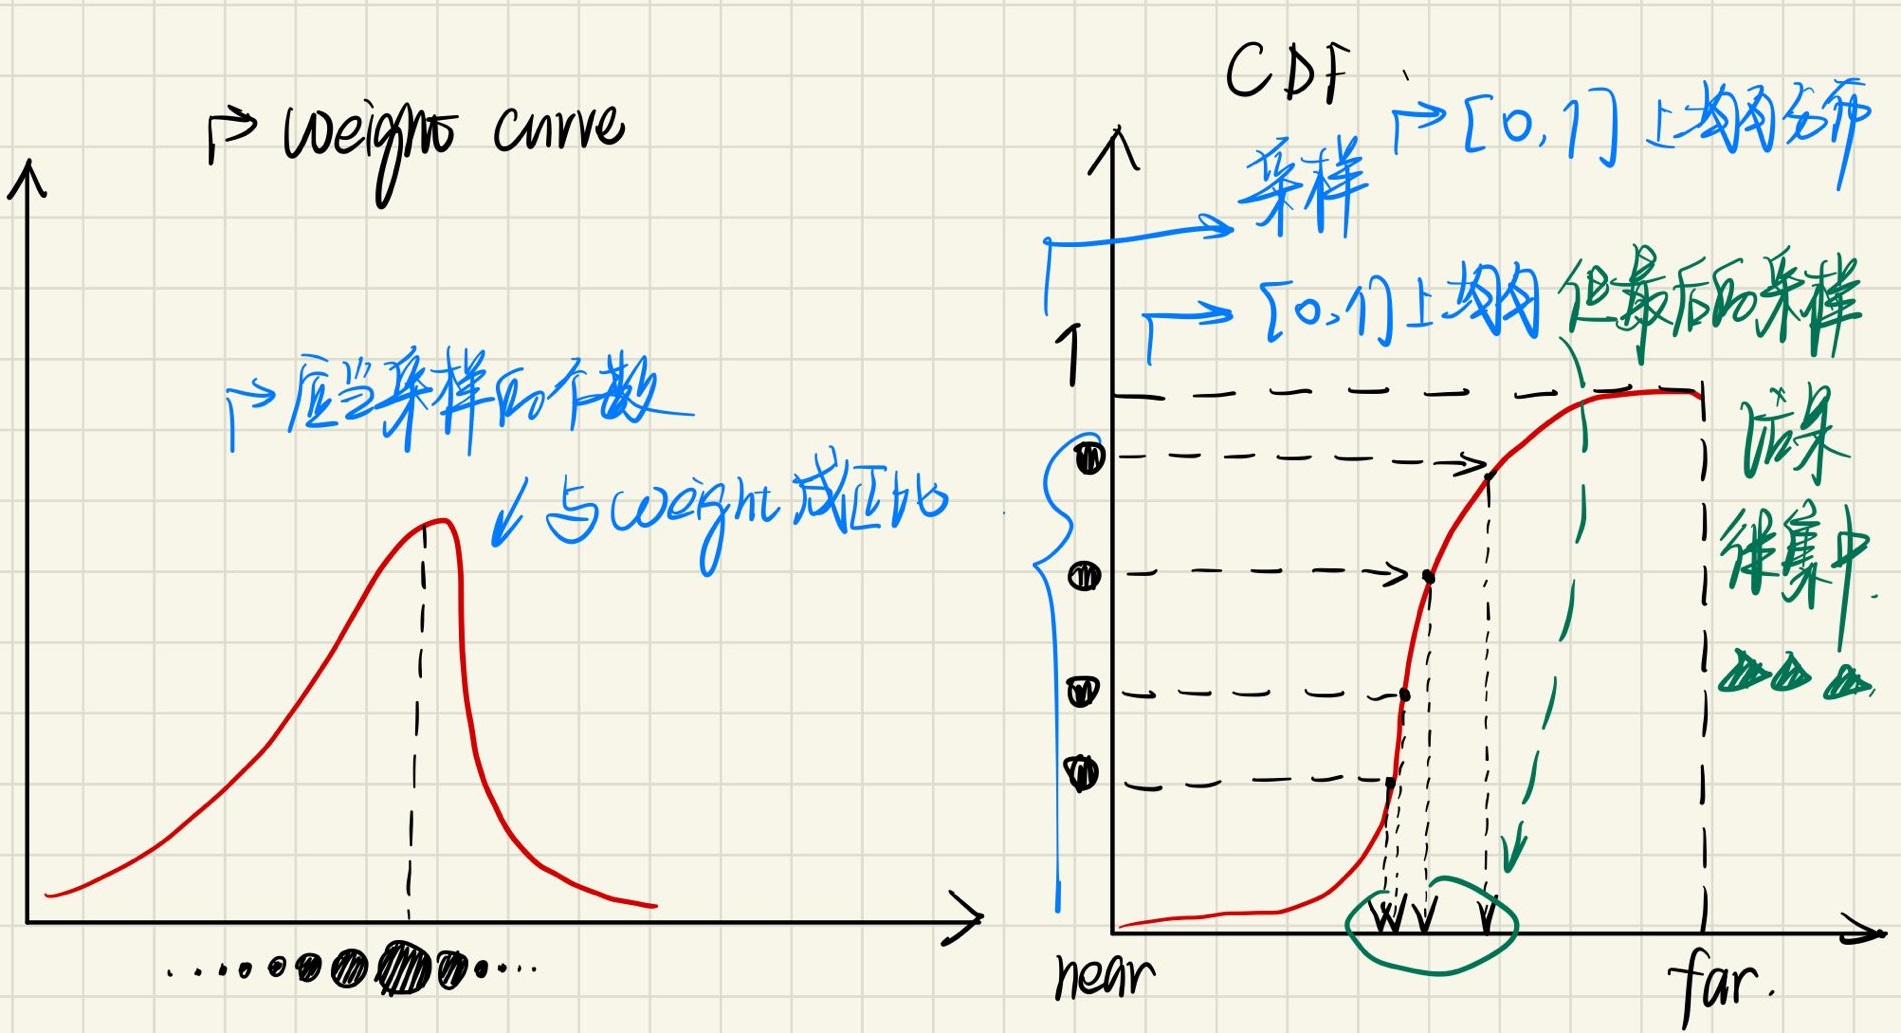 weight curve
应当采样的个数
与weight成正比
CDF
[0,1]上均匀分布
采样
[0,1]上均匀
但最后的采样
结果
很集中
1
near
far.